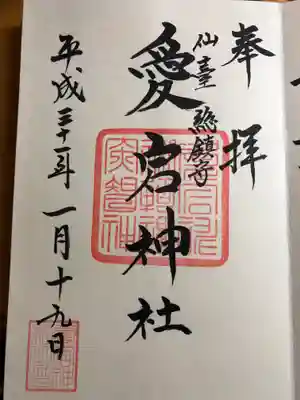 奉拝
仙臺総鎮守
愛宕神社
平成三十一年一月十九日